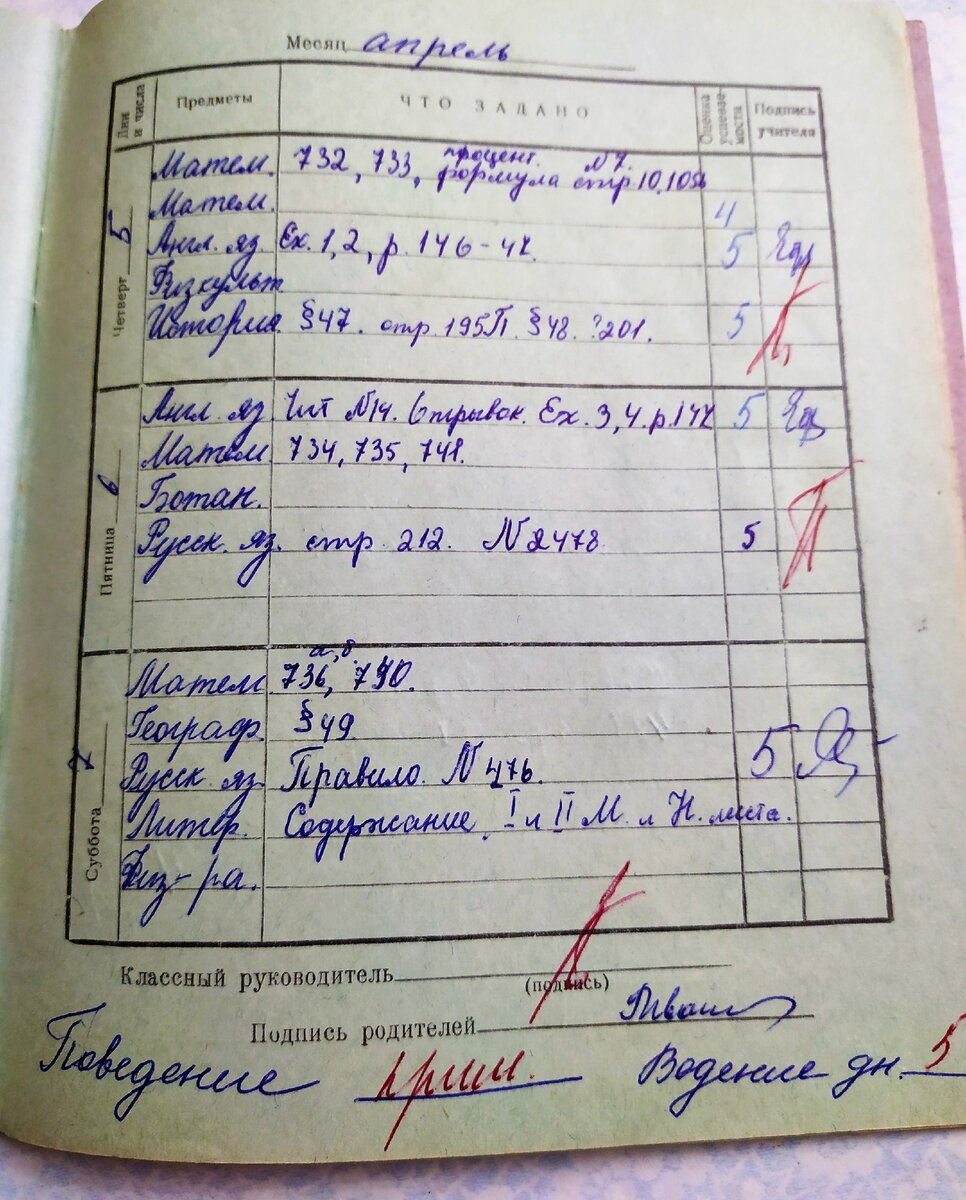 Месяц апрель
Дни и числа Предметы ЧТО ЗАДАНО Оценка успеваемости Подпись учителя
Четверг 5
Матем. 732, 733, процент. формула N7. стр. 10, 105
Матем. 4
Англ. яз. Ex. 1, 2, p. 146-47. 5
Физкульт
История §47. стр. 195 П. §48. ?201. 5
Пятница 6
Англ. яз. Чт N14. 6 отрывок. Ex. 3, 4. p. 147 5
Матем. 734, 735, 741.
Ботан.
Русск. яз. стр. 212. N 2478 5
Суббота 7
Матем. 736 а, б, 740.
Географ. §49
Русск. яз. Правило. N 476. 5
Литер. Содержание, I и II М. и Н. листа.
Физ-ра.
Классный руководитель
(подпись)
Подпись родителей
Поведение прим. Водение дн. 5